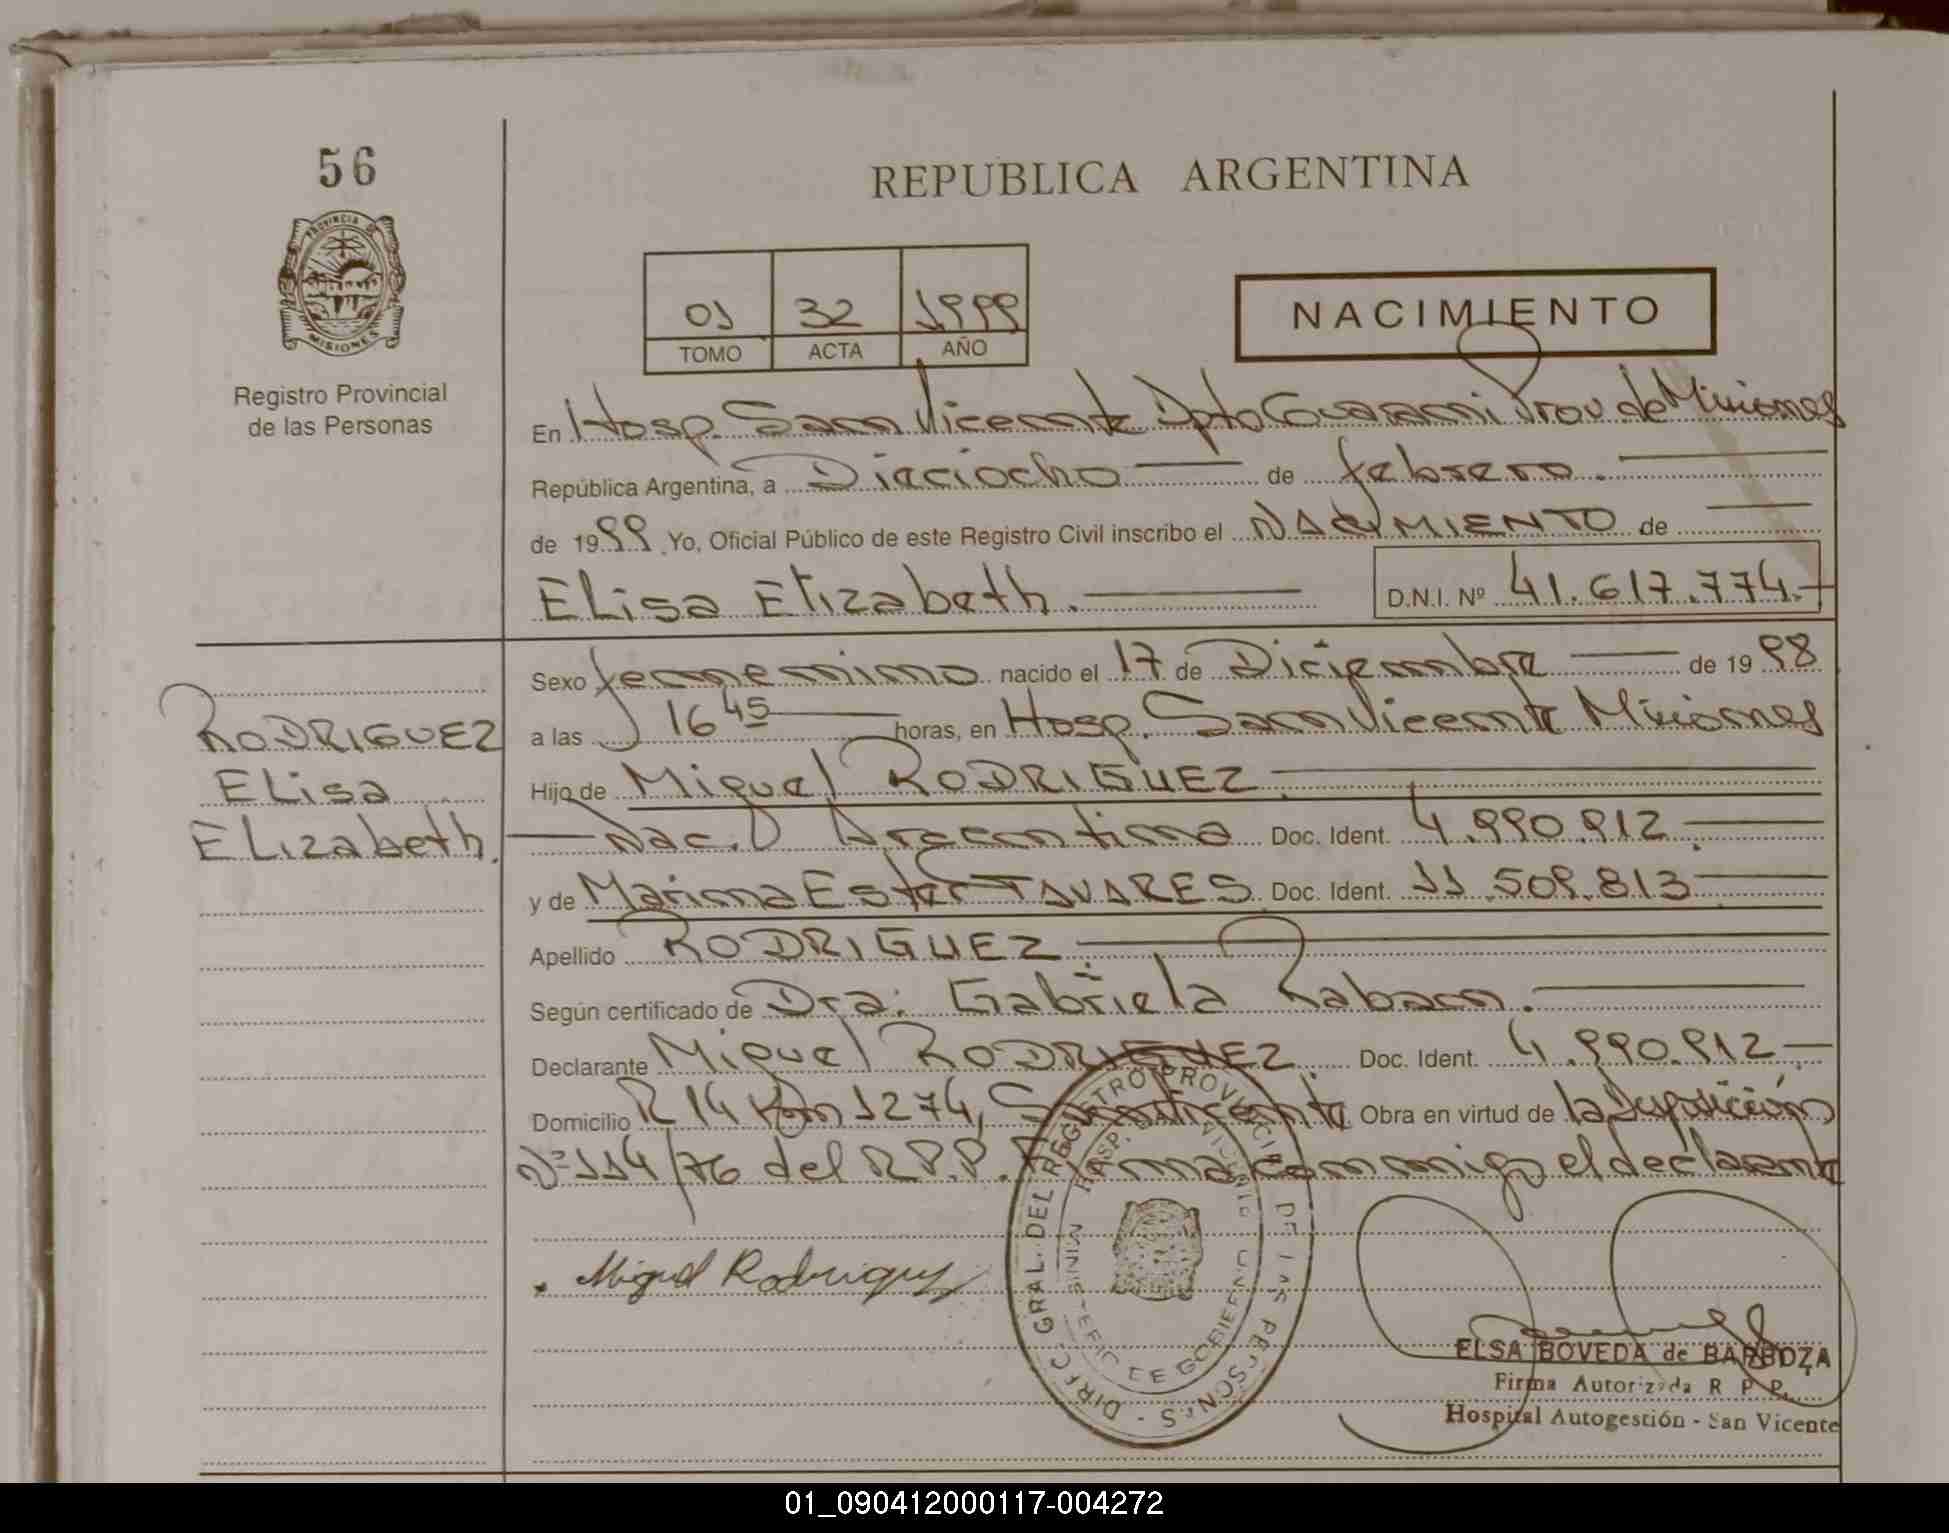 56
PROVINCIA DE
MISIONES
Registro Provincial
de las Personas
REPUBLICA ARGENTINA
01 32 1999
TOMO ACTA AÑO
NACIMIENTO
En Hosp. San Vicente Dpto Guarani Prov. de Misiones
República Argentina, a Dieciocho de febrero.
de 1999 Yo, Oficial Público de este Registro Civil inscribo el NACIMIENTO de
Elisa Elizabeth. D.N.I. Nº 41.617.774.-
Sexo femenino nacido el 17 de Diciembre de 1998
a las 16 45 horas, en Hosp. San Vicente Misiones
Hijo de Miguel RODRIGUEZ.
Nac. Argentina Doc. Ident. 4.990.912.
y de Marina Ester TAVARES Doc. Ident. 11.509.813
Apellido RODRIGUEZ.
Según certificado de Dra. Gabriela Raban.
Declarante Miguel RODRIGUEZ. Doc. Ident. 4.990.912.
Domicilio R 14 Km 1274, San Vicente Obra en virtud de la Disposición
Nº 114/76 del R.P.P. Firma conmigo el declarante
RODRIGUEZ
Elisa
Elizabeth.
Miguel Rodriguez
DIREC. GRAL. DEL REGISTRO PROVINCIAL DE LAS PERSONAS
ELSA BOVEDA de BARBOZA
Firma Autorizada R P P.
Hospital Autogestión - San Vicente
01_090412000117-004272